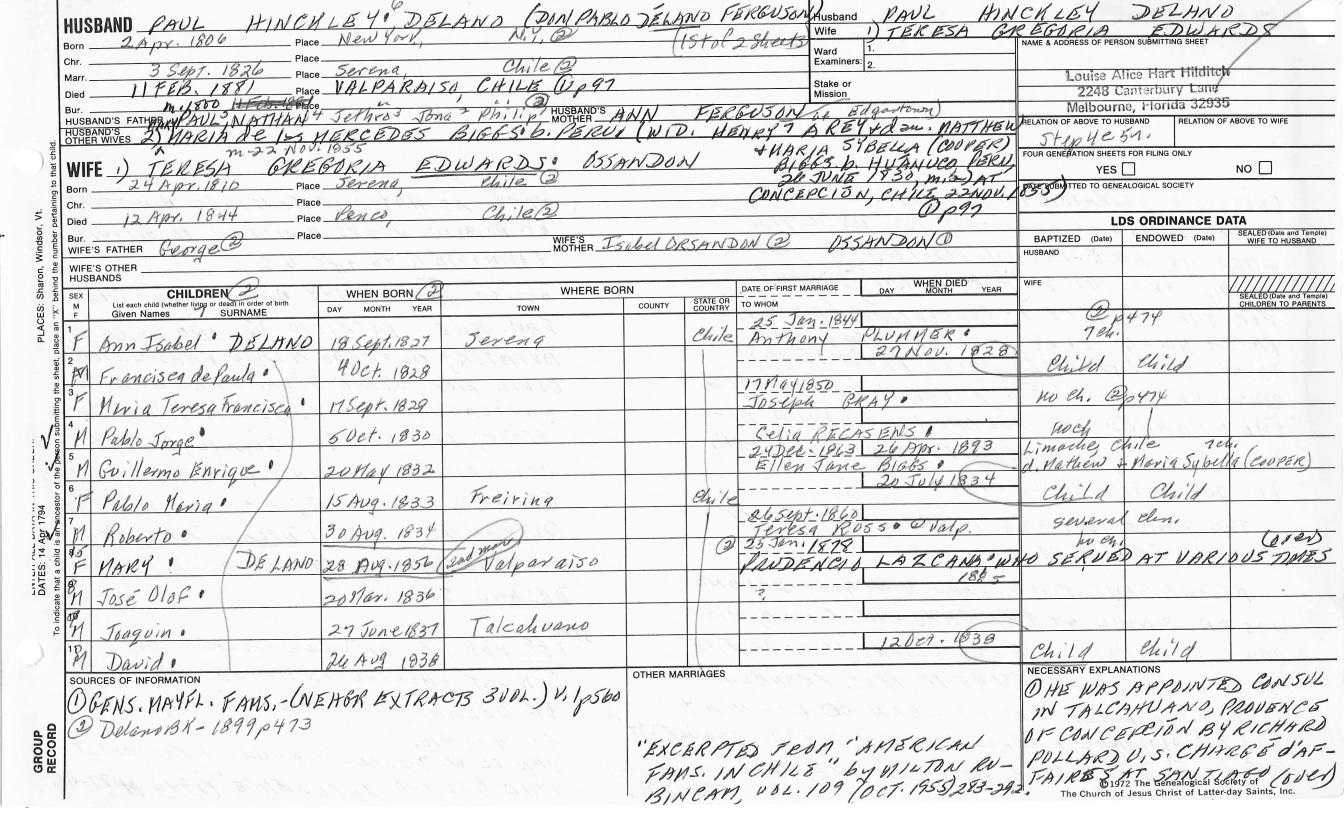 HUSBAND PAUL HINCKLEY 6 DELANO (DON PABLO DELANO FERGUSON)
(1st of 2 Sheets)
Born 2 Apr. 1806 Place New York, N.Y. ②
Chr. Place
Marr. 3 Sept. 1826 Place Serena, Chile ②
Died 11 FEB. 1881 Place VALPARAISO, CHILE ① p97
Bur. Place
m. 1800
HUSBAND'S FATHER PAUL 5 NATHAN 4 Jethro 3 Jona 2 Philip 1 ② HUSBAND'S MOTHER ANN FERGUSON (of Edgartown)
HUSBAND'S OTHER WIVES 2) MARIA de las MERCEDES BIGGS b. PERU, (WID. HENRY 7 AREY + dau. MATTHEW
m-22 Nov. 1855
+ MARIA SYBELLA (COOPER)
BIGGS b. HUANUCO PERU,
24 JUNE 1830 m. 2) AT
CONCEPCION, CHILE 22 NOV. 1855)
① p97
WIFE 1) TERESA GREGORIA EDWARDS OSSANDON
Born 24 Apr. 1810 Place Serena, Chile ②
Chr. Place
Died 12 Apr. 1844 Place Penco, Chile ②
Bur. Place
WIFE'S FATHER George ② WIFE'S MOTHER Isabel ORSANDON ② OSSANDON ①
WIFE'S OTHER HUSBANDS
Husband PAUL HINCKLEY DELANO
Wife 1) TERESA GREGORIA EDWARDS
Ward 1.
Examiners: 2.
Stake or Mission
NAME & ADDRESS OF PERSON SUBMITTING SHEET
Louise Alice Hart Hilditch
2248 Canterbury Lane
Melbourne, Florida 32935
RELATION OF ABOVE TO HUSBAND RELATION OF ABOVE TO WIFE
FOUR GENERATION SHEETS FOR FILING ONLY
YES NO
DATE SUBMITTED TO GENEALOGICAL SOCIETY
LDS ORDINANCE DATA
BAPTIZED (Date) ENDOWED (Date) SEALED (Date and Temple) WIFE TO HUSBAND
HUSBAND
WIFE
SEALED (Date and Temple) CHILDREN TO PARENTS
SEX M F
CHILDREN ②
List each child (whether living or dead) in order of birth
Given Names SURNAME
WHEN BORN ②
DAY MONTH YEAR
WHERE BORN
TOWN COUNTY STATE OR COUNTRY
DATE OF FIRST MARRIAGE
TO WHOM
WHEN DIED
DAY MONTH YEAR
1 F Ann Isabel DELANO 18 Sept. 1827 Serena Chile 25 Jan. 1844 Anthony PLUMMER ② p474 7 ch.
2 M Francisca de Paula 4 Oct. 1828 27 Nov. 1828 Child Child
3 F Maria Teresa Francisca 17 Sept. 1829 17 May 1850 Joseph GRAY no ch. ② p474
4 M Pablo Jorge 5 Oct. 1830 Celia RECASENS no ch
5 M Guillermo Enrique 20 May 1832 24 Dec. 1863 26 Apr. 1893 Ellen Jane BIGGS Limache, Chile 7 ch. d. Mathew + Maria Sybella (COOPER)
6 F Pablo Maria 15 Aug. 1833 Freirina Chile 20 July 1834 Child Child
7 M Roberto 30 Aug. 1834 26 Sept. 1860 Teresa ROSS ① Valp. several chn.
F MARY DELANO 28 Aug. 1856 2nd marr Valparaiso ② 25 Jan. 1878 PRUDENCIO LAZCANO WHO SERVED AT VARIOUS TIMES no ch. (over)
M José Olof 20 Mar. 1836 ?
M Joaquin 27 June 1837 Talcahuano
M David 26 Aug 1838 12 Oct. 1838 Child Child
SOURCES OF INFORMATION
① GENS. MAYFL. FAMS. - (NEHGR EXTRACTS 3 VOL.) V. 1 p560
② Delano BK - 1899 p473
OTHER MARRIAGES
"EXCERPTED FROM "AMERICAN
FAMS. IN CHILE" by MILTON RU-
BINCAM, VOL. 109 (OCT. 1955) 283-292.
NECESSARY EXPLANATIONS
① HE WAS APPOINTED CONSUL
IN TALCAHUANO, PROVENCE
OF CONCEPCION BY RICHARD
POLLARD U.S. CHARGÉ d'AF-
FAIRES AT SANTIAGO (over)
©1972 The Genealogical Society of
The Church of Jesus Christ of Latter-day Saints, Inc.
PLACES: Sharon, Windsor, Vt.
DATES: 14 Apr 1794
To indicate that a child is an ancestor of the person submitting the sheet, place an "X" behind the number pertaining to that child.
GROUP RECORD